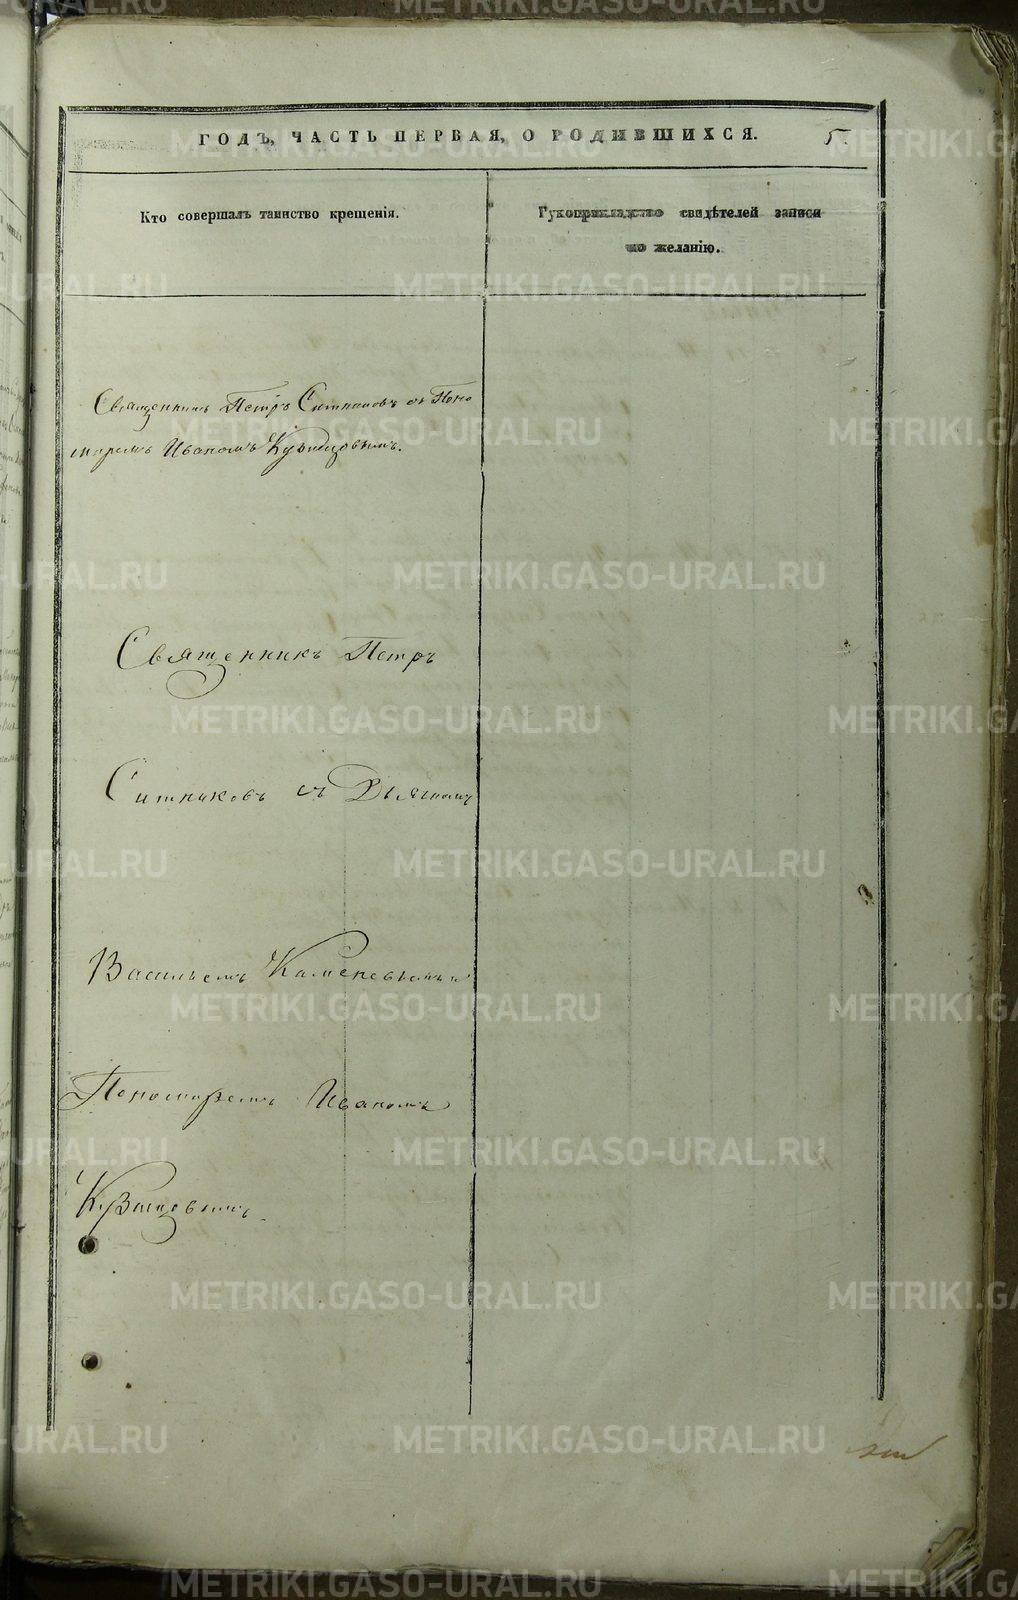 ГОДЪ, ЧАСТЬ ПЕРВАЯ, О РОДИВШИХСЯ. 5.
Кто совершалъ таинство крещенія.
Рукоприкладство свидѣтелей записи
по желанію.
Священникъ Петръ Ситниковъ съ Поно
маремъ Иваномъ Кузнецовымъ.
Священникъ Петръ
Ситниковъ съ Дьякономъ
Васильемъ Каменевымъ и
Пономаремъ Иваномъ
Кузнецовымъ
METRIKI.GASO-URAL.RU